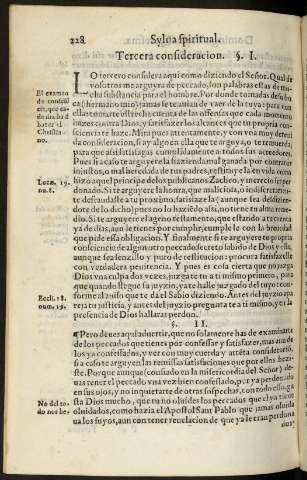 228 Sylua spiritual.
Tercera consideracion. §. I.
LO tercero considera aqui como diziendo el Señor, Qual de
vosotros me arguyra de peccado, son palabras estas de mu-
cha substancia para el hombre. Por donde tomadas de so
ca (hermano mio) jamas se te auian de caer de la tuya: para con
ellas tomarte estrecha cuenta de las offensas que cada momento
hazes contra Dios, y satisfazer los a los que tu propria con-
sciencia te haze. Mira pues attentamente, y con vna muy deteni-
da consideracion, si ay alguno en ella que te arguya, o te remuerda,
para que assi satisfagas cumplidamente a todos sus acreedores.
Pues si a caso te arguyere la hazienda mal ganada por contratos
injustos, o mal heredada de tus padres, restituye la en vida como
hizo aquel principe de los publicanos Zacheo, y merecio ser per-
donado. Si te arguyere la honra, que maliciosa, o indiscretamen-
te desacreditaste a tu proximo, satisfaze la (aunque sea desdizien-
dote de lo dicho) pues no lo haziendo assi, no tiene tu alma reme-
dio. Si te arguyere el ageno testamento, que estando a tercera
ya de dias, aun le tienes por cumplir, cumple le con la breuedad
que pide essa obligacion. Y finalmente si te arguyere tu propria
consciencia de algun otro peccado secreto sabido de Dios y della,
aunque sea senzillo y puro de restitucion: procura satisfazelle
con verdadera penitencia. Y pues es cosa cierta que no juzga
Dios vna culpa dos vezes, juzga te tu a ti mismo primero, para
que quando llegue su juyzio, ya te halle juzgado del tuyo: con-
forme al auiso que te da el Sabio diziendo. Antes del juyzio apa-
reja tu justicia, y antes del juyzio pregunta te a ti mismo, y en la
presencia de Dios hallaras perdon.
§. II.
Pero deues aqui aduertir, que no solamente has de examinarte
de los peccados que tienes por confessar y satisfazer, mas aun de
los ya confessados, y ver con muy cuerda y attenta consideracio,
si a caso te arguyen las remissas satisfaciones que por ellos hezi-
ste. Por que aunque (confiado en la misericordia del Señor) de-
uas tener el peccado vna vez bien confessado, por ya perdonado
en sus ojos, y no inquietarte de otras sospechas: con todo esso, gu-
sta Dios mucho, que tu no oluides los peccados que el ya tiene
oluidados, como hazia el Apostol Sant Pablo que jamas oluida
ua los suyos, aun con tener reuelacion de que ya le eran perdona
dos?
El examen
de conscien
cia, que ca-
da dia ha de
hazer el
Christia-
no.
Lucæ. 19.
no. 8.
Eccli. 18.
num. 19.
No del to-
do nos he-